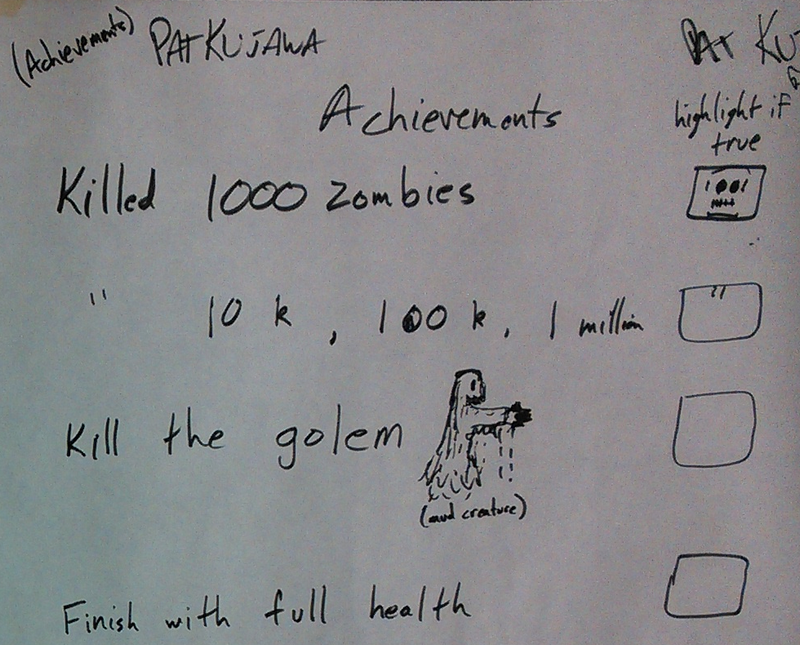 (Achievements) PAT KUJAWA
PAT KU
Achievements
highlight if
true
Killed 1000 zombies
" 10 k, 100 k, 1 million "
Kill the golem
(mud creature)
Finish with full health